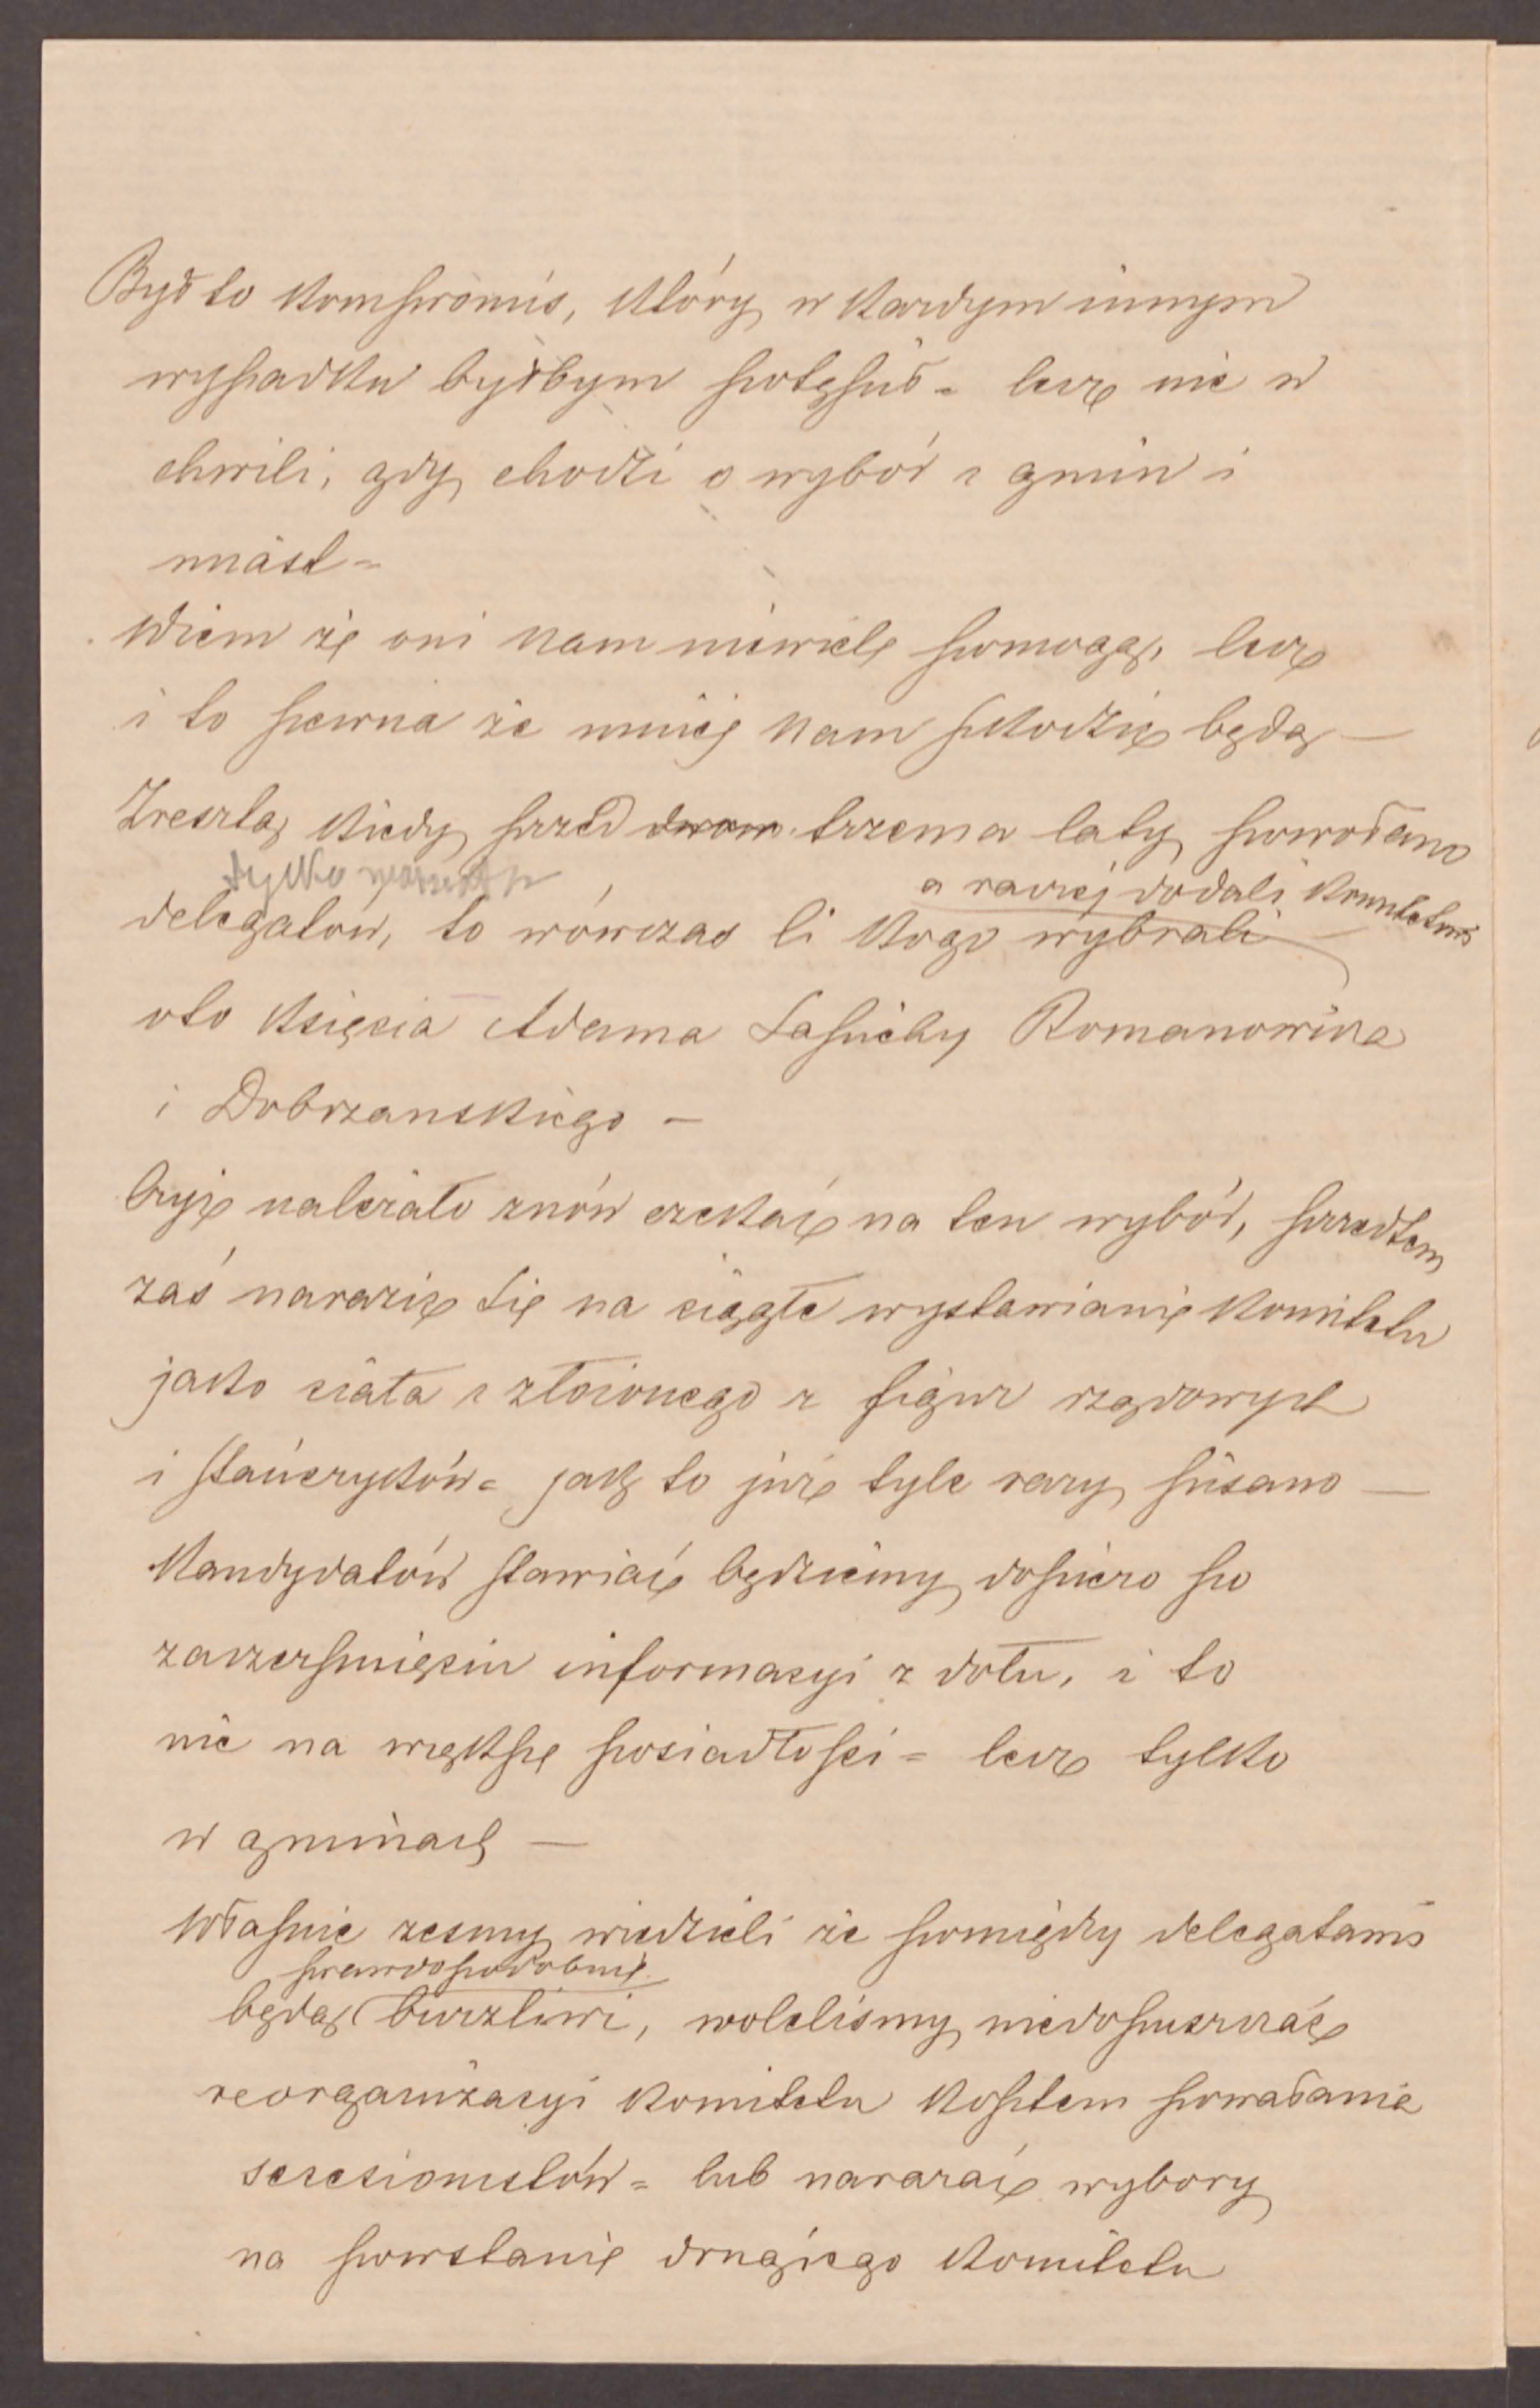 Był to kompromis, który w każdym innym
wypadku byłbym potępił = lecz nie w
chwili, gdy chodzi o wybór z gmin i
miast =
Wiem że oni nam niewiele pomogą, lecz
i to pewna że mniej nam szkodzić będą —
Zresztą kiedy przed dwom trzema laty powołano
tylko
a raczej dodali komitetowi
delegatów, to wówczas li kogo wybrali —
oto księcia Adama Sapiehy Romanowicza
i Dobrzanskiego —
Czyż należało znów czekać na ten wybór, przedtem
zaś narazić się na ciągłe wystawianie komitetu
jako ciała z złożonego z figur rządowych
i stańczyków = jak to już tyle razy pisano —
Kandydatów stawiać będziemy dopiero po
zaczerpnięciu informacyi z dołu, i to
nie na większe posiadłości = lecz tylko
w gminach —
Własnie żesmy wiedzieli że pomiędzy delegatami
prawdopodobnie
będą burzliwi, woleliśmy niedopuszczać
reorganizacyi komitetu kosztem powołania
secesionistów = lub narażać wybory
na powstanie drugiego komitetu